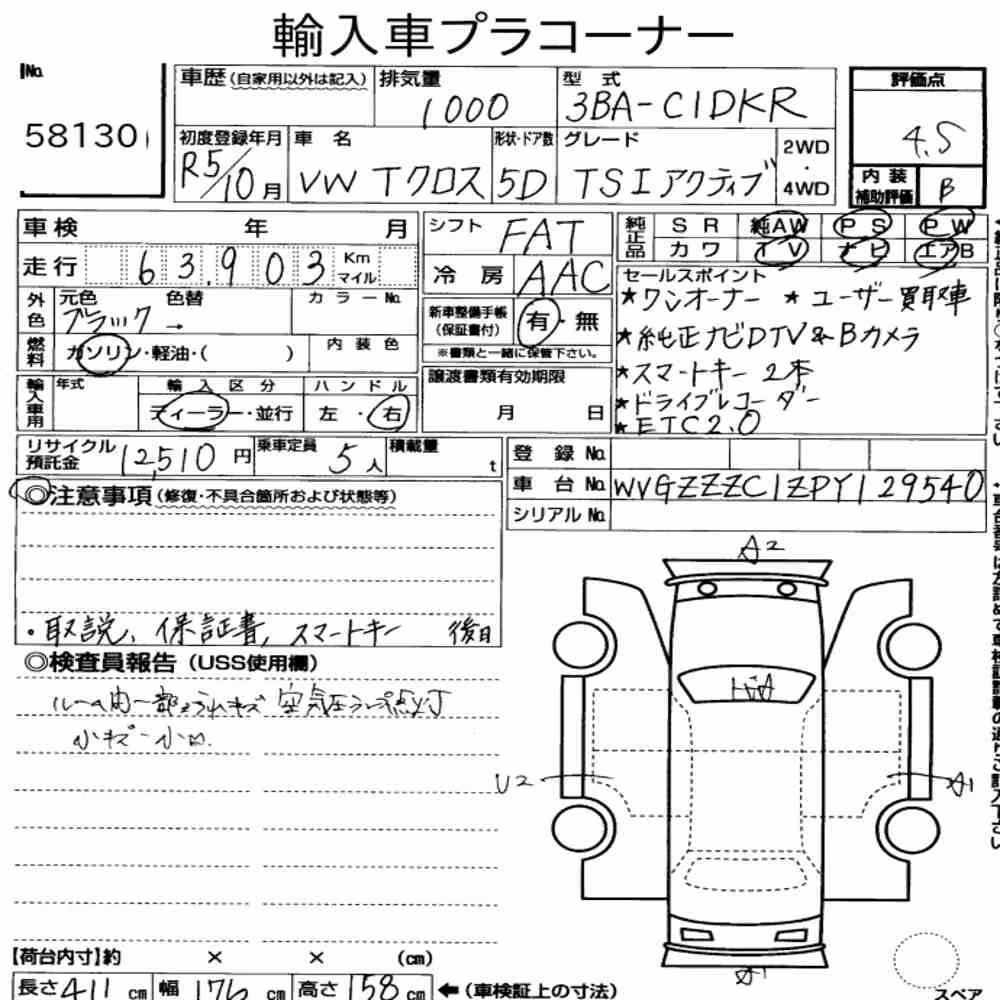 輸入車プラコーナー
No.
58130
車歴(自家用以外は記入)
排気量
1000
型式
3BA-C1DKR
評価点
4.5
内装
補助評価
B
初度登録年月
R5/10月
車名
VW Tクロス
形状・ドア数
5D
グレード
TSI アクティブ
2WD
・
4WD
車検 年 月
走行 63,903 Km
マイル
外色
元色 色替
ブラック →
カラーNo.
燃料
ガソリン・軽油・( )
内装色
輸入車用
年式
輸入区分
ディーラー・並行
ハンドル
左・右
シフト FAT
冷房 AAC
新車整備手帳
(保証書付)
有・無
※書類と一緒に保管下さい。
譲渡書類有効期限
月 日
純正品
SR 純AW PS PW
カワ TV ナビ エアB
セールスポイント
★ワンオーナー ★ユーザー買取車
★純正ナビDTV&Bカメラ
★スマートキー 2本
★ドライブレコーダー
★ETC2.0
リサイクル
預託金
12,510円
乗車定員
5人
積載量
t
登録No.
車台No. WVGZZZC1ZPY129540
シリアルNo.
◎注意事項(修復・不具合箇所および状態等)
・取説、保証書、スマートキー 後日
◎検査員報告(USS使用欄)
空気圧ランプ点灯
小キズ
A2
U2
A1
A1
【荷台内寸】約 × × (cm)
長さ411cm 幅176cm 高さ158cm ←(車検証上の寸法)
スペア